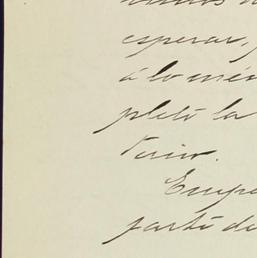 esperar,
á lo mén
pletó la
turio.
Empe
parte de